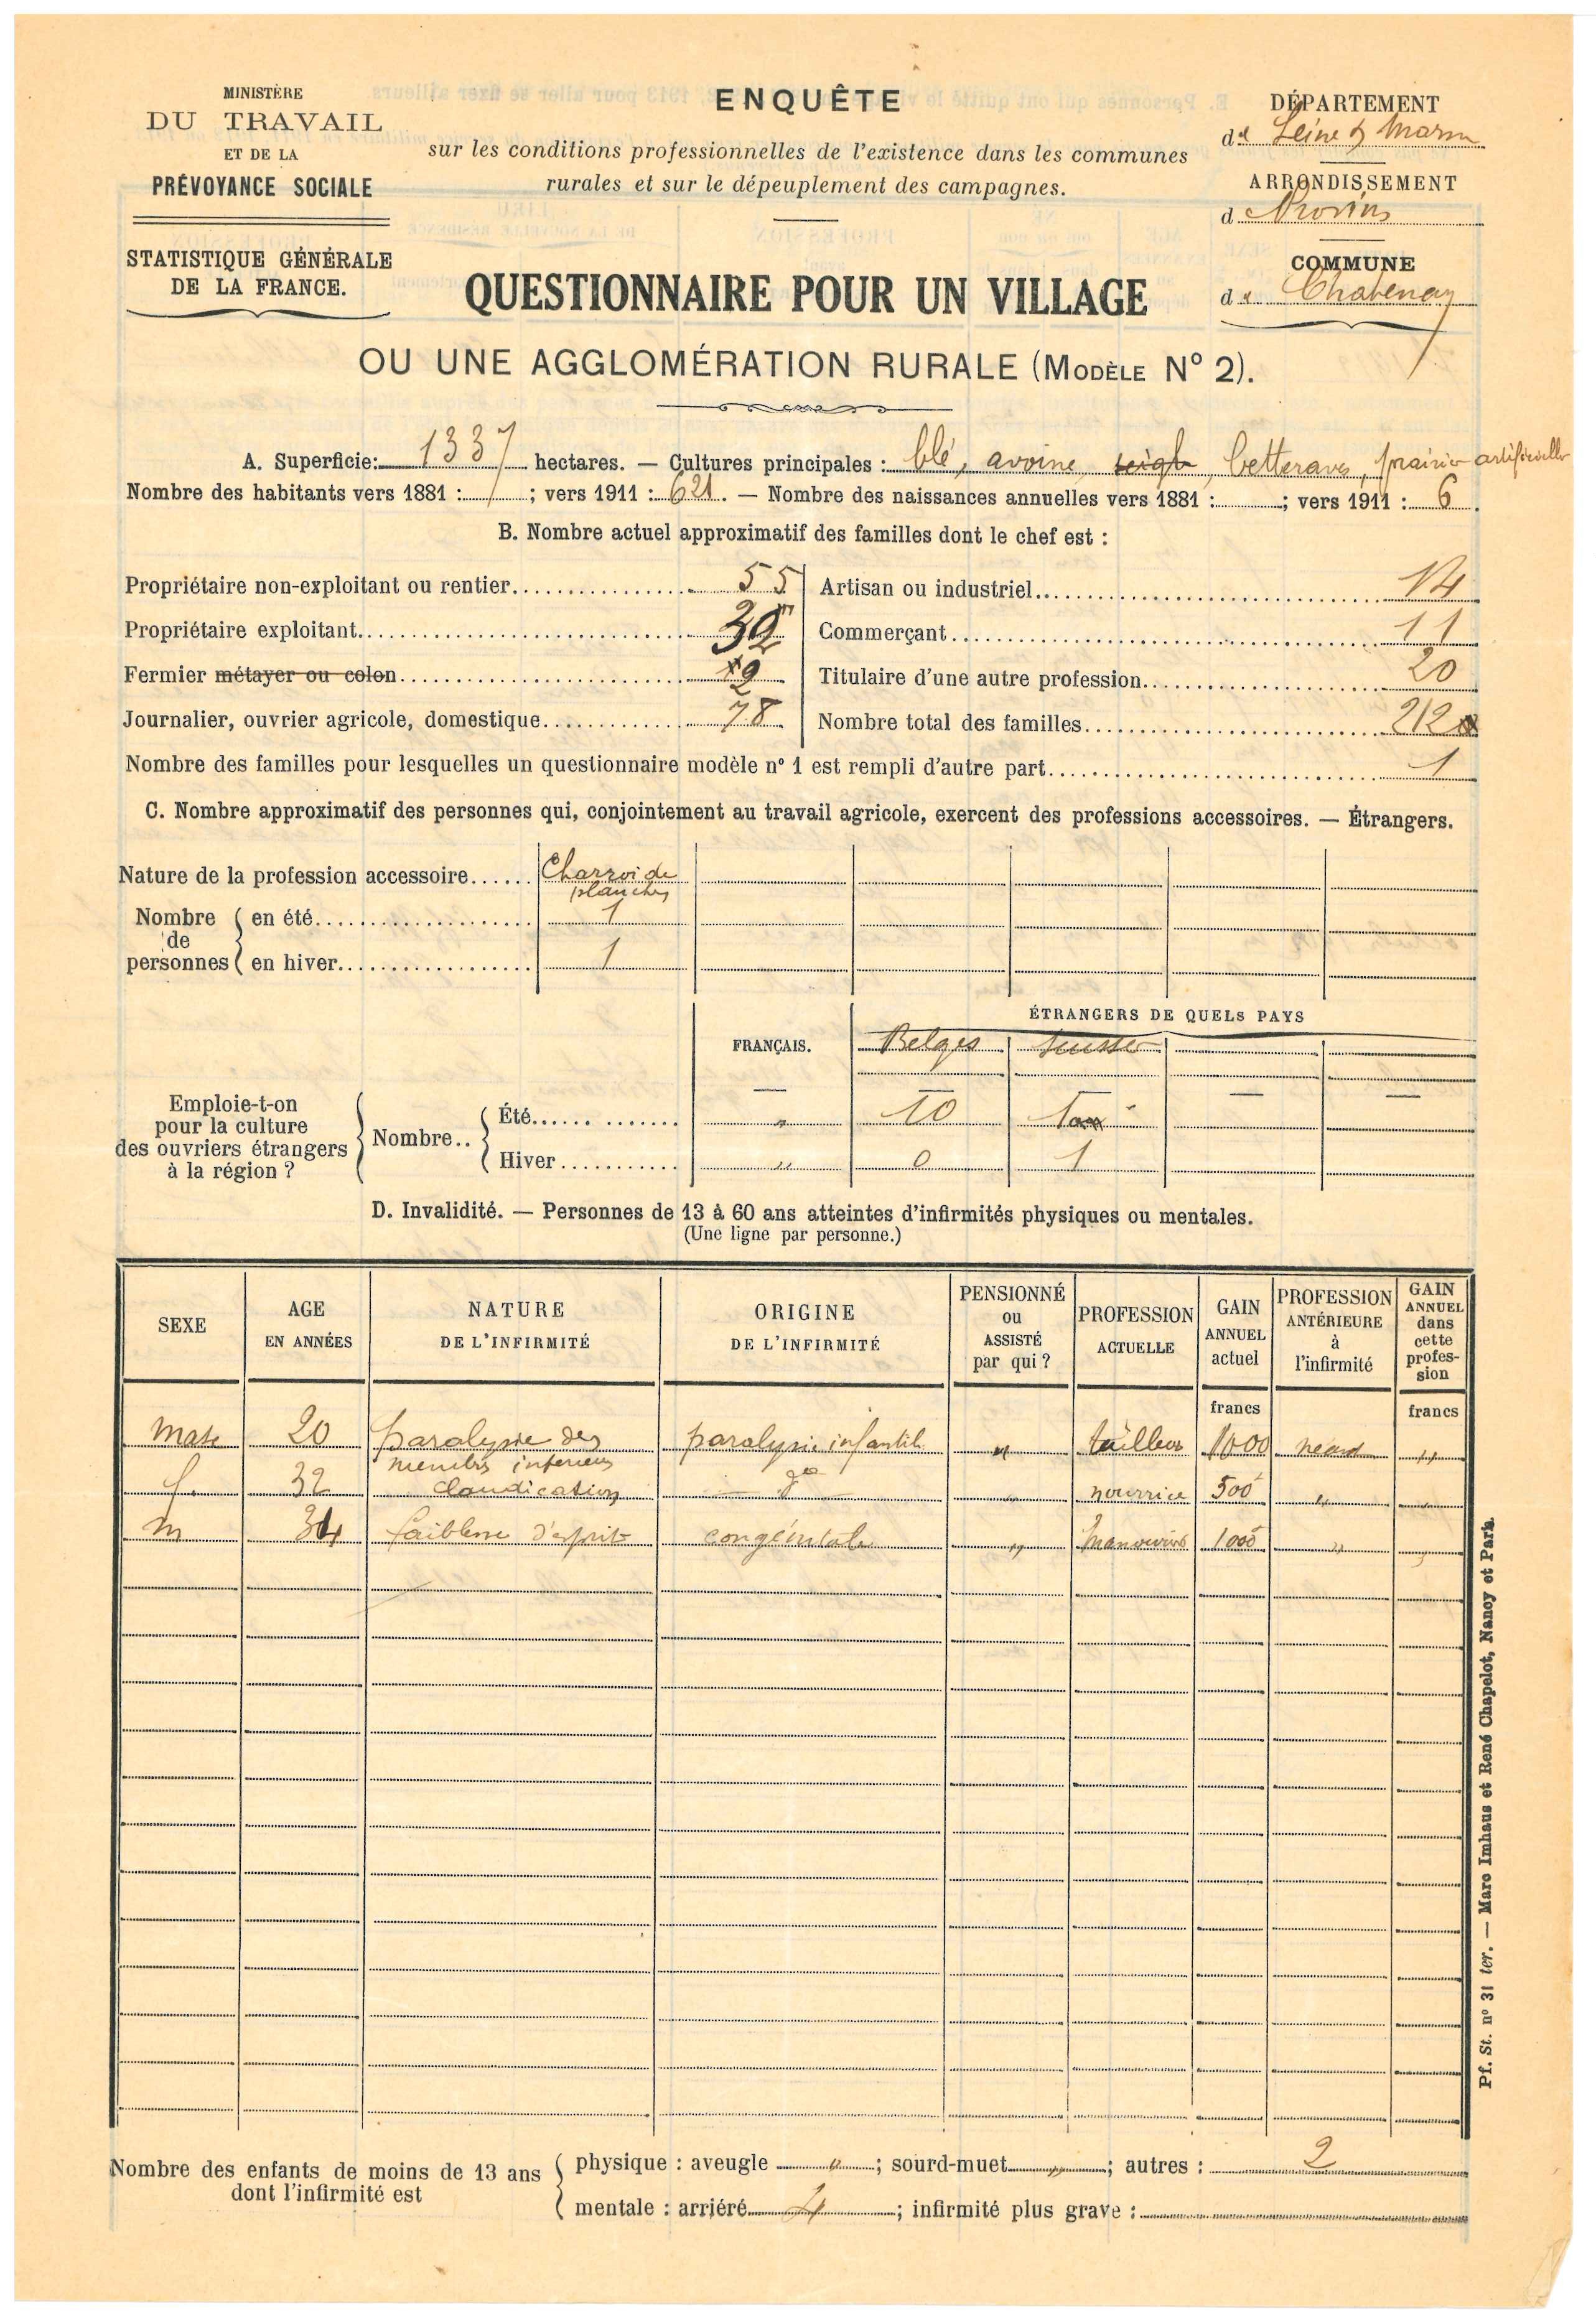 MINISTÈRE
DU TRAVAIL
ET DE LA
PRÉVOYANCE SOCIALE
STATISTIQUE GÉNÉRALE
DE LA FRANCE.
ENQUÊTE
sur les conditions professionnelles de l'existence dans les communes
rurales et sur le dépeuplement des campagnes.
DÉPARTEMENT
de Seine & Marne
ARRONDISSEMENT
d Provins
COMMUNE
de Chatenay
QUESTIONNAIRE POUR UN VILLAGE
OU UNE AGGLOMÉRATION RURALE (MODÈLE N° 2).
A. Superficie: 1337 hectares. — Cultures principales : blé, avoine, seigle, betteraves, prairies artificielles
Nombre des habitants vers 1881 : / ; vers 1911 : 621. — Nombre des naissances annuelles vers 1881 : ; vers 1911 : 6.
B. Nombre actuel approximatif des familles dont le chef est :
Propriétaire non-exploitant ou rentier 55
Propriétaire exploitant
Fermier métayer ou colon 2
Journalier, ouvrier agricole, domestique 78
Artisan ou industriel 14
Commerçant 11
Titulaire d'une autre profession 20
Nombre total des familles 212
Nombre des familles pour lesquelles un questionnaire modèle n° 1 est rempli d'autre part 1
C. Nombre approximatif des personnes qui, conjointement au travail agricole, exercent des professions accessoires. — Étrangers.
Nature de la profession accessoire Charroi de
planches
Nombre de personnes
en été 1
en hiver 1
FRANÇAIS.
ÉTRANGERS DE QUELS PAYS
Belges suisse
Emploie-t-on
pour la culture
des ouvriers étrangers
à la région ?
Nombre..
Été " 10 1
Hiver " 0 1
D. Invalidité. — Personnes de 13 à 60 ans atteintes d'infirmités physiques ou mentales.
(Une ligne par personne.)
SEXE
AGE
EN ANNÉES
NATURE
DE L'INFIRMITÉ
ORIGINE
DE L'INFIRMITÉ
PENSIONNÉ
ou
ASSISTÉ
par qui ?
PROFESSION
ACTUELLE
GAIN
ANNUEL
actuel
PROFESSION
ANTÉRIEURE
à
l'infirmité
GAIN
ANNUEL
dans
cette
profes-
sion
francs francs
Masc 20 paralysie des paralysie infantile " tailleur 1000 néant "
membres inférieurs
f. 32 claudication — d° — " nourrice 500 " "
m 34 faiblesse d'esprit congénitale " manouvrier 1000 " "
Nombre des enfants de moins de 13 ans
dont l'infirmité est
physique : aveugle " ; sourd-muet " ; autres : 2
mentale : arriéré 4 ; infirmité plus grave :
Pf. St. n° 31 ter. — Marc Imhaus et René Chapelot, Nancy et Paris.